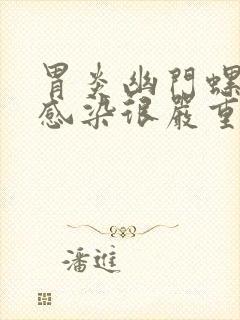 胃炎幽門螺
感染很嚴重
潘進